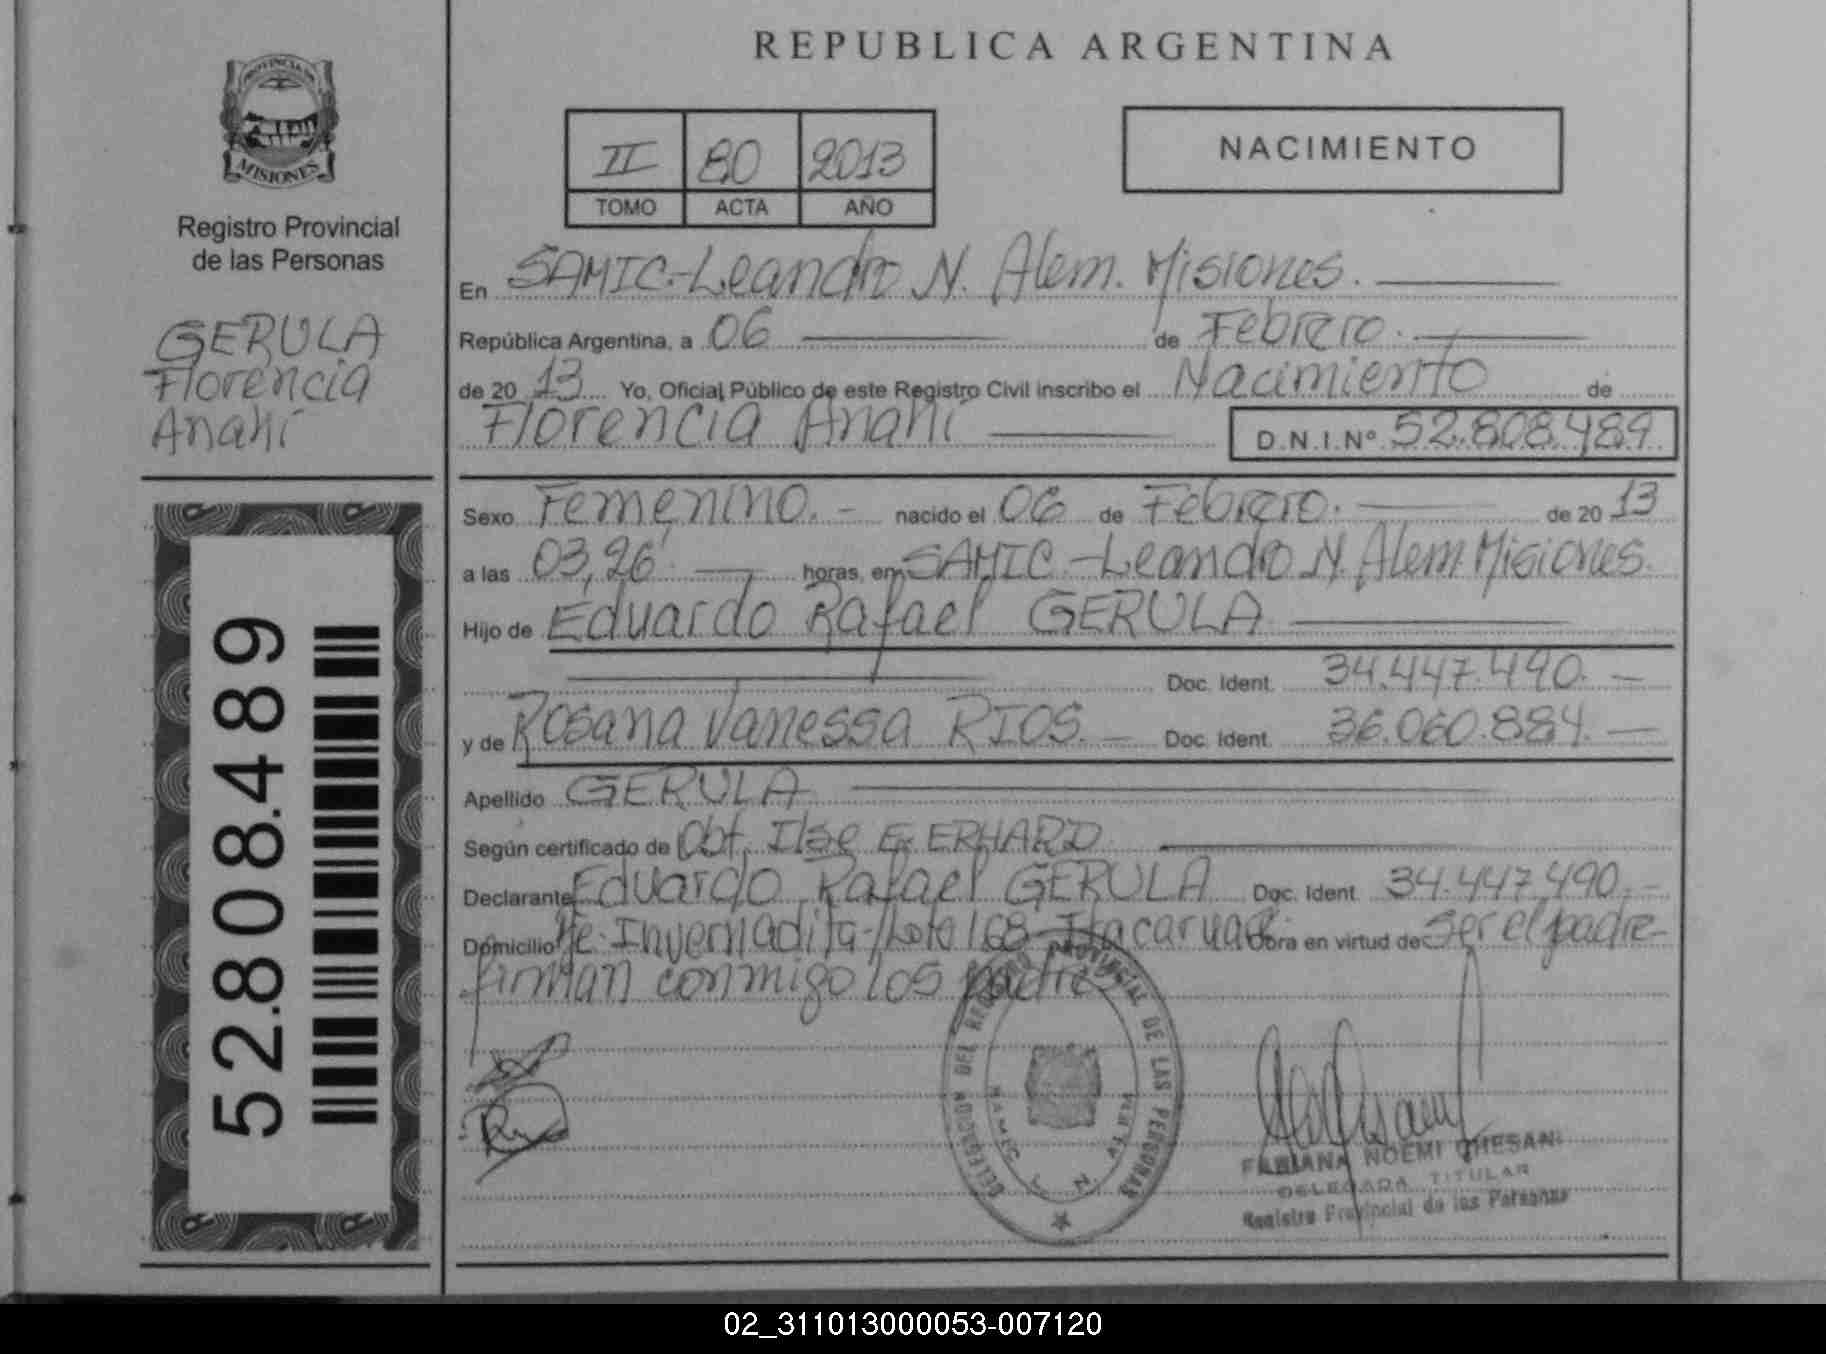 REPUBLICA ARGENTINA
PROVINCIA DE
MISIONES
Registro Provincial
de las Personas
GERULA
Florencia
Anahí
52.808.489
II 80 2013
TOMO ACTA AÑO
NACIMIENTO
En SAMIC-Leandro N. Alem. Misiones.
República Argentina, a 06 de Febrero.
de 20 13 Yo, Oficial Público de este Registro Civil inscribo el Nacimiento de
Florencia Anahí D.N.I.Nº 52.808.489
Sexo Femenino. - nacido el 06 de Febrero. de 20 13
a las 03,26' horas, en SAMIC-Leandro N. Alem Misiones.
Hijo de Eduardo Rafael GERULA
Doc. Ident. 34.447.490. -
y de Rosana Vanessa RIOS. - Doc. Ident. 36.060.884. -
Apellido GERULA
Según certificado de Obt. Ilse E. ERHARD
Declarante Eduardo Rafael GERULA Doc. Ident. 34.447.490. -
Domicilio Invernadita-Lote 168-Itacaruaré. Obra en virtud de ser el padre-
firman conmigo los padres
DELEGACION DEL REGISTRO PROVINCIAL DE LAS PERSONAS
FABIANA NOEMI GHESANI
DELEGADA TITULAR
Registro Provincial de las Personas
02_311013000053-007120